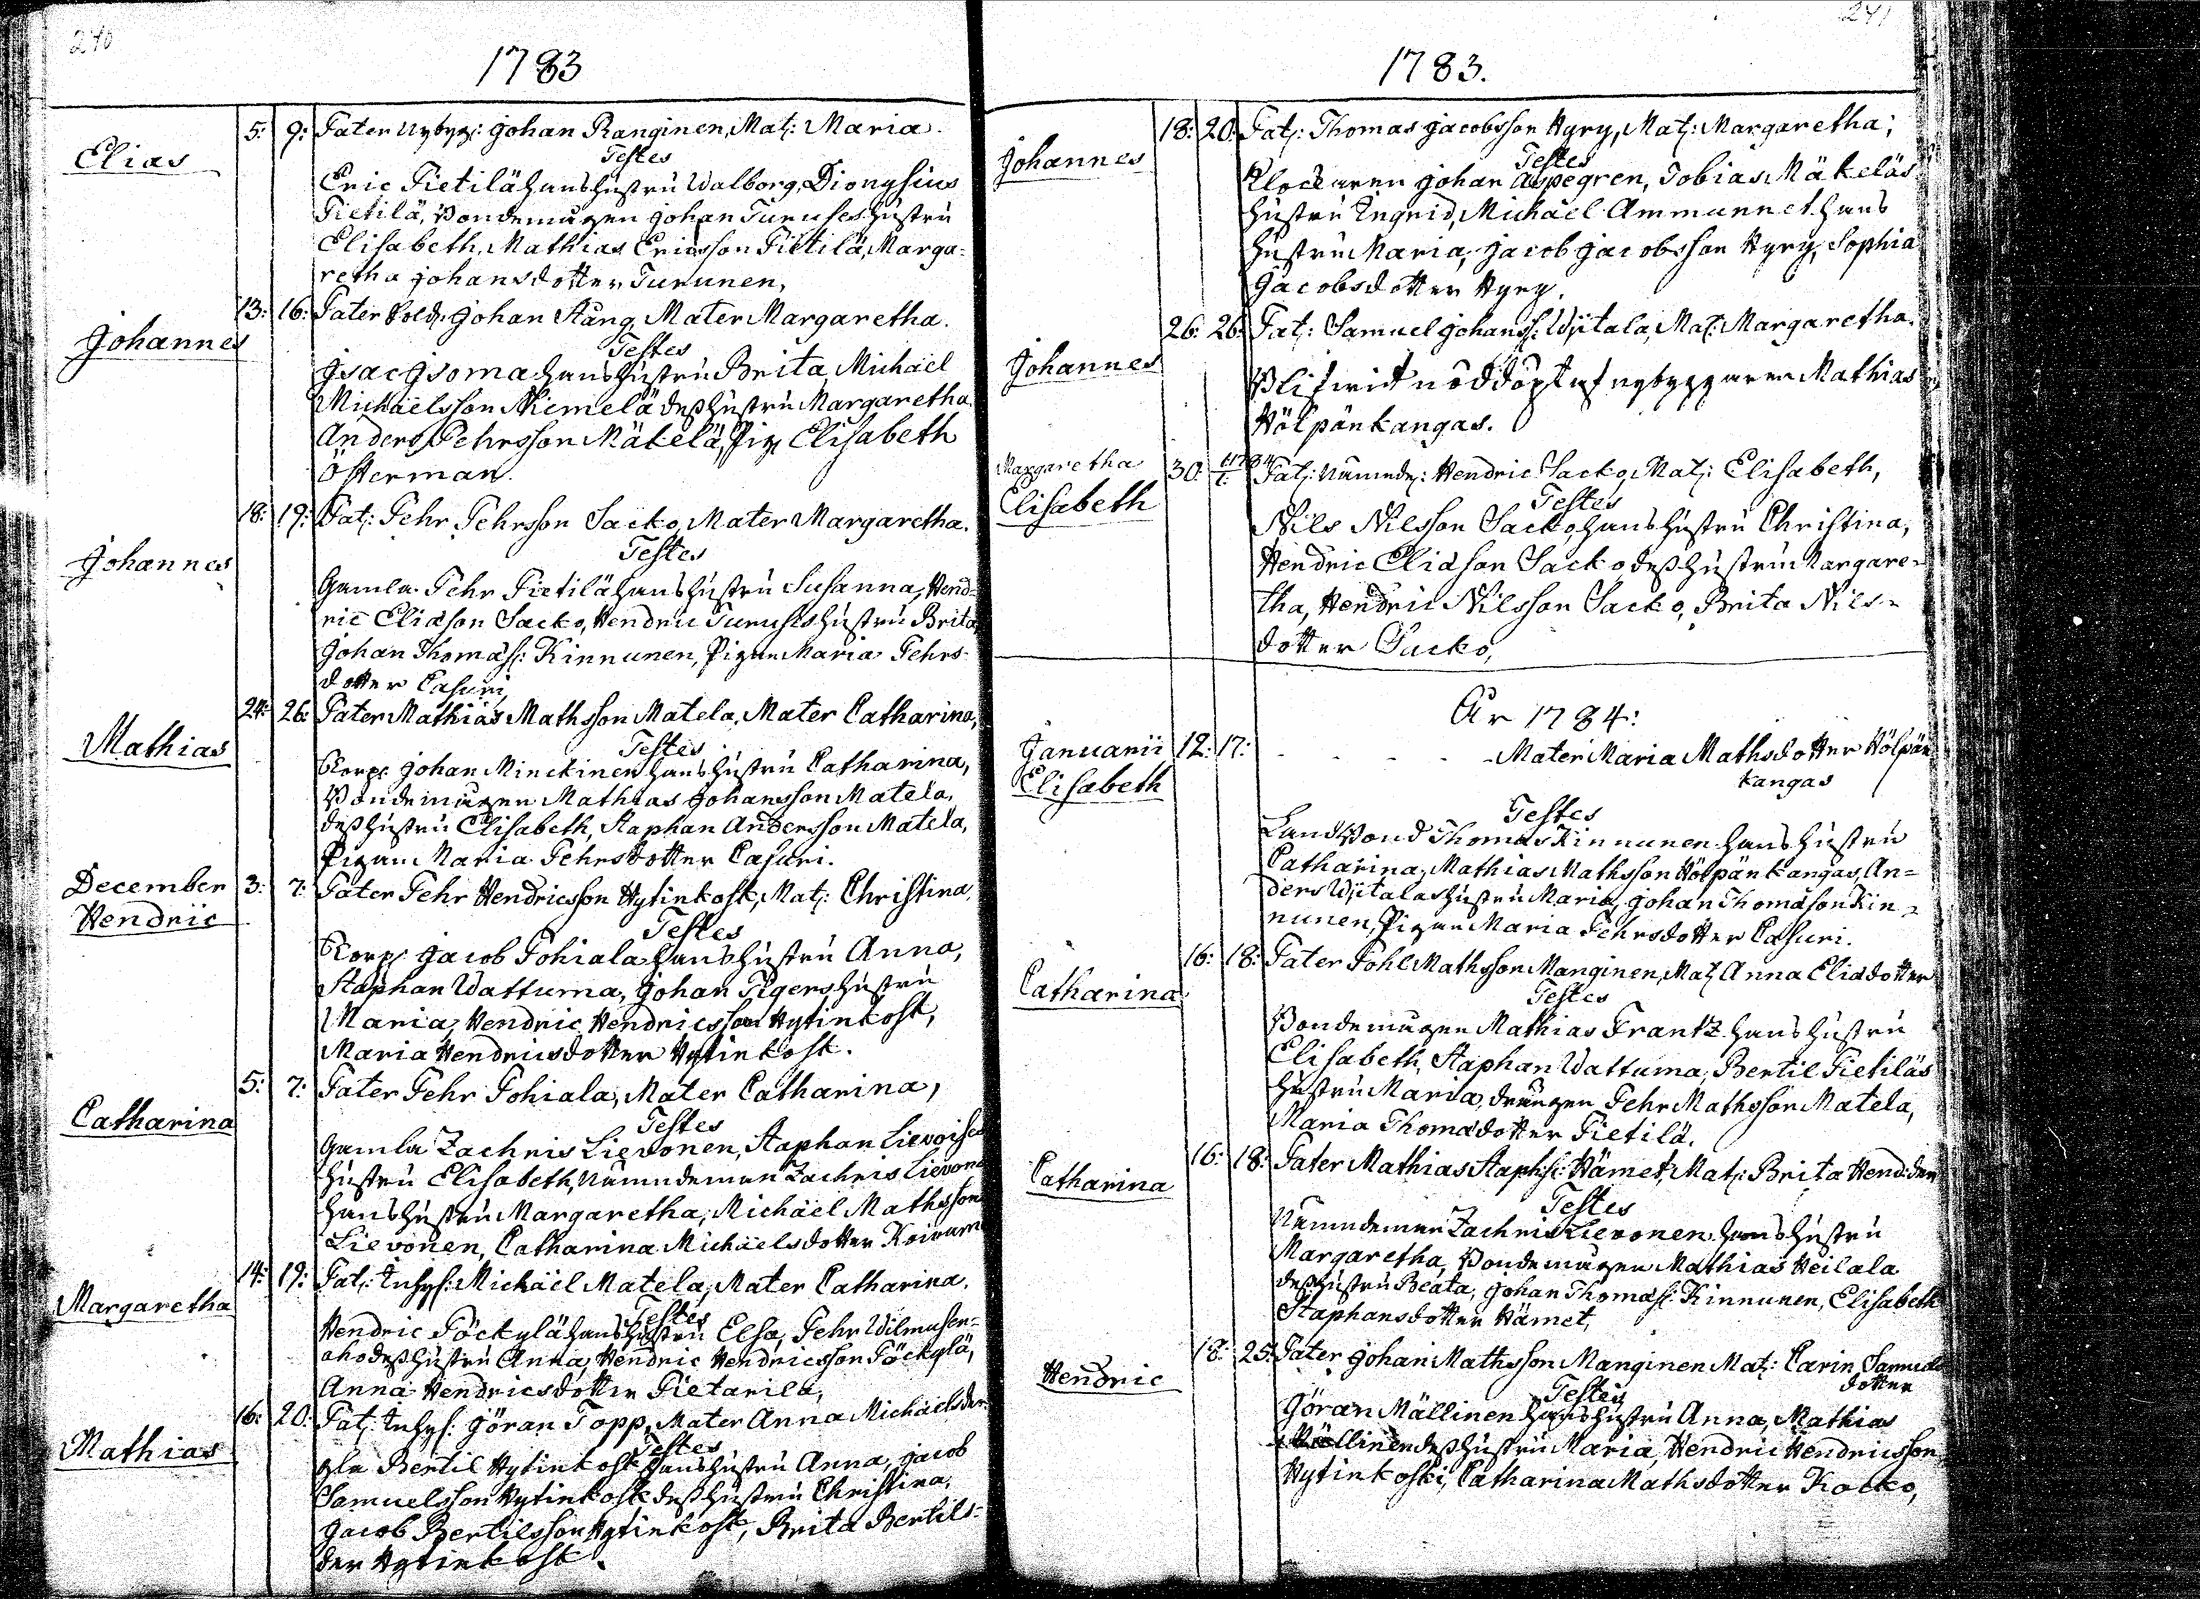 240
1783
Elias
5: 9: Pater Nybyg: Johan Ranginen, Mat: Maria.
Testes
Eric Pietilä hans hustru Walborg, Dionysius
Pietilä, Bondemågen Johan Turuses hustru
Elisabeth, Mathias Ericsson Pietilä, Marga-
retha Johansdotter Turunen,
Johannes
13: 16: Pater Sold: Johan Stång, Mater Margaretha.
Testes
Isac Isoma hans hustru Brita, Michaël
Michaëlsson Niemelä dess hustru Margaretha
Anders Pehrsson Mäkelä, Pig: Elisabeth
Österman.
Johannes
18: 19: Pat: Pehr Pehrsson Sacko, Mater Margaretha.
Testes
Gamla Pehr Pietilä hans hustru Susanna, Hend-
ric Eliason Sacko, Hendric Turuses hustru Brita
Johan Thomass: Kinnunen, Pigan Maria Pehrs-
dotter Casuri,
Mathias
24: 26: Pater Mathias Mathsson Matela, Mater Catharina,
Testes
Corp: Johan Minckinen hans hustru Catharina,
Bondemågen Mathias Johansson Matela,
dess hustru Elisabeth, Staphan Andersson Matela,
Pigan Maria Pehrsdotter Casuri.
December
Hendric
3: 7: Pater Pehr Hendricsson Hytinkosk, Mat: Christina,
Testes
Corp: Jacob Pohiala hans hustru Anna,
Staphan Wattuma, Johan Tigers hustru
Maria, Hendric Hendricsson Hytinkosk,
Maria Hendricsdotter Hytinkosk.
Catharina
5: 7: Pater Pehr Pohiala, Mater Catharina,
Testes
Gamla Zachris Lievonen, Staphan Lievoises
hustru Elisabeth, Nämndeman Zachris Lievonen
hans hustru Margaretha, Michaël Mathsson
Lievonen, Catharina Michaelsdotter
Margaretha
14: 19: Pat: Inhys: Michaël Matela, Mater Catharina.
Testes
Hendric Pöckylä hans hustru Elsa, Pehr Wilmusen-
aho dess hustru Anna, Hendric Hendricsson Pöckylä,
Anna Hendricsdotter Pietarila,
Mathias
16: 20: Pat: Inhys: Göran Topp, Mater Anna Michaelsder
Testes
gla Bertil Hytinkosk hans hustru Anna, Jacob
Samuelsson Hytinkosk dess hustru Christina,
Jacob Bertilsson Hytinkosk, Brita Bertils-
der Hytinkosk.
241
1783.
Johannes
18: 20: Pat: Thomas Jacobsson Hyry, Mat: Margaretha;
Testes
Klockaren Johan Aspegren, Tobias Mäkeläs
hustru Ingrid, Michaël Ammunnet hans
hustru Maria, Jacob Jacobsson Hyry, Sophia
Jacobsdotter Hyry.
Johannes
26: 26: Pat: Samuel Johanss: Wijtala, Mat: Margaretha.
Blifvit nöddöpt af nybyggaren Mathias
Hölpänkangas.
Margaretha
Elisabeth
30: Pat: Nämnde: Hendric Sacko, Mat: Elisabeth,
Testes
Nils Nilsson Sacko, hans hustru Christina,
Hendric Eliason Sacko dess hustru Margare-
tha, Hendric Nilsson Sacko, Brita Nils-
dotter Sacko,
År 1784:
Januarii
Elisabeth
12: 17: - - - - - Mater Maria Mathsdotter Hölpän
kangas
Testes
Landbond Thomas Kinnunen hans hustru
Catharina, Mathias Mathsson Hölpänkangas, An-
ders Wijtalas hustru Maria, Johan Thomason Kin-
nunen, Pigan Maria Pehrsdotter Casuri.
Catharina
16: 18: Pater Pohl Mathsson Manginen, Mat: Anna Eliadotter
Testes
Bondemågen Mathias Frantz hans hustru
Elisabeth, Staphan Wattuma, Bertil Pietiläs
hustru Maria, drängen Pehr Mathsson Matela,
Maria Thomadotter Pietilä.
Catharina
16: 18: Pater Mathias Staphs: Hämet, Mat: Brita Hend:der
Testes
Nämndeman Zachris Lievonen hans hustru
Margaretha, Bondemågen Mathias Heilala
dess hustru Beata, Johan Thomass: Kinnunen, Elisabeth
Staphansdotter Hämet,
Hendric
18: 25: Pater Johan Mathsson Manginen Mat: Carin Samuels
dotter
Testes
Göran Mällinen hans hustru Anna, Mathias
Mällinen dess hustru Maria, Hendric Hendricsson
Hytinkoski, Catharina Mathsdotter Kacko,